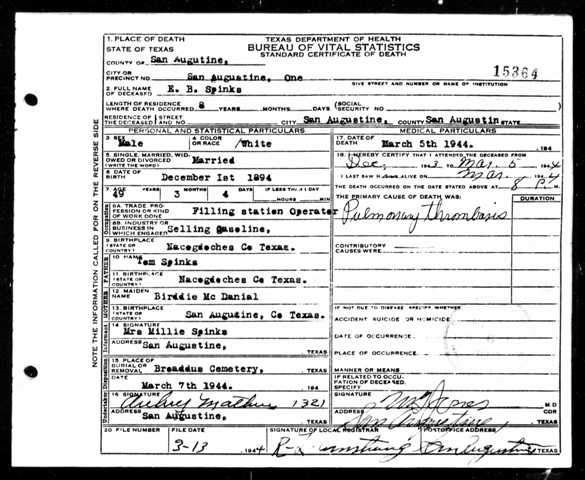 1. PLACE OF DEATH
STATE OF TEXAS
TEXAS DEPARTMENT OF HEALTH
BUREAU OF VITAL STATISTICS
STANDARD CERTIFICATE OF DEATH
COUNTY OF San Augutine,
15364
CITY OR PRECINCT NO San Augustine, One
GIVE STREET AND NUMBER OR NAME OF INSTITUTION
2. FULL NAME OF DECEASED K. B. Spinks
LENGTH OF RESIDENCE WHERE DEATH OCCURRED 8 YEARS MONTHS DAYS (SOCIAL SECURITY NO
RESIDENCE OF THE DECEASED STREET AND NO CITY San Augustine, COUNTY San Augustin STATE
PERSONAL AND STATISTICAL PARTICULARS
MEDICAL PARTICULARS
3. SEX Male
4. COLOR OR RACE /White
17. DATE OF DEATH March 5th 1944. 194
5. SINGLE, MARRIED, WIDOWED OR DIVORCED (WRITE THE WORD) Married
18. I HEREBY CERTIFY THAT I ATTENDED THE DECEASED FROM
Mar. 5 1944
6. DATE OF BIRTH December 1st 1894
I LAST SAW ALIVE ON Mar.
7. AGE 49 YEARS 3 MONTHS 4 DAYS IF LESS THAN 1 DAY HOURS MIN
DEATH OCCURRED ON THE DATE STATED ABOVE AT 8 P M
THE PRIMARY CAUSE OF DEATH WAS:
DURATION
8A. TRADE PROFESSION OR KIND OF WORK DONE Filling station Operater
Pulmonary thrombosis
8B. INDUSTRY OR BUSINESS IN WHICH ENGAGED Selling Gaseline,
9. BIRTHPLACE (STATE OR COUNTRY) Nacogdoches Co Texas.
CONTRIBUTORY CAUSES WERE
FATHER
10. NAME Tom Spinks
11. BIRTHPLACE (STATE OR COUNTRY) Nacogdoches Co Texas.
MOTHER
12. MAIDEN NAME Birddie Mc Danial
13. BIRTHPLACE (STATE OR COUNTRY) San Augustine, Co Texas.
IF NOT DUE TO DISEASE, SPECIFY WHETHER
ACCIDENT SUICIDE OR HOMICIDE
Informant
14. SIGNATURE Mrs Millie Spinks
DATE OF OCCURRENCE
ADDRESS San Augustine, TEXAS
PLACE OF OCCURRENCE
15. PLACE OF BURIAL OR REMOVAL Broaddus Cemetery, TEXAS
MANNER OR MEANS
IF RELATED TO OCCUPATION OF DECEASED, SPECIFY
DATE March 7th 1944. 194
16. SIGNATURE 1321
SIGNATURE Jones M D
ADDRESS San Augustine, TEXAS
ADDRESS San Augustine TEXAS
20 FILE NUMBER
FILE DATE 3-13 1944
SIGNATURE OF LOCAL REGISTRAR
POSTOFFICE ADDRESS San Augustine TEXAS
NOTE THE INFORMATION CALLED FOR ON THE REVERSE SIDE